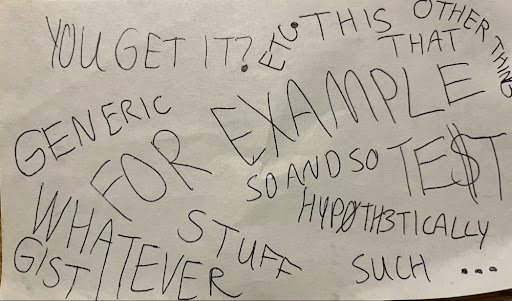 YOU GET IT?
ETC.
THIS
OTHER THING
THAT
GENERIC
FOR EXAMPLE
SO AND SO
TE$T
HYPØTH3TICALLY
WHATEVER
STUFF
GIST
SUCH ...